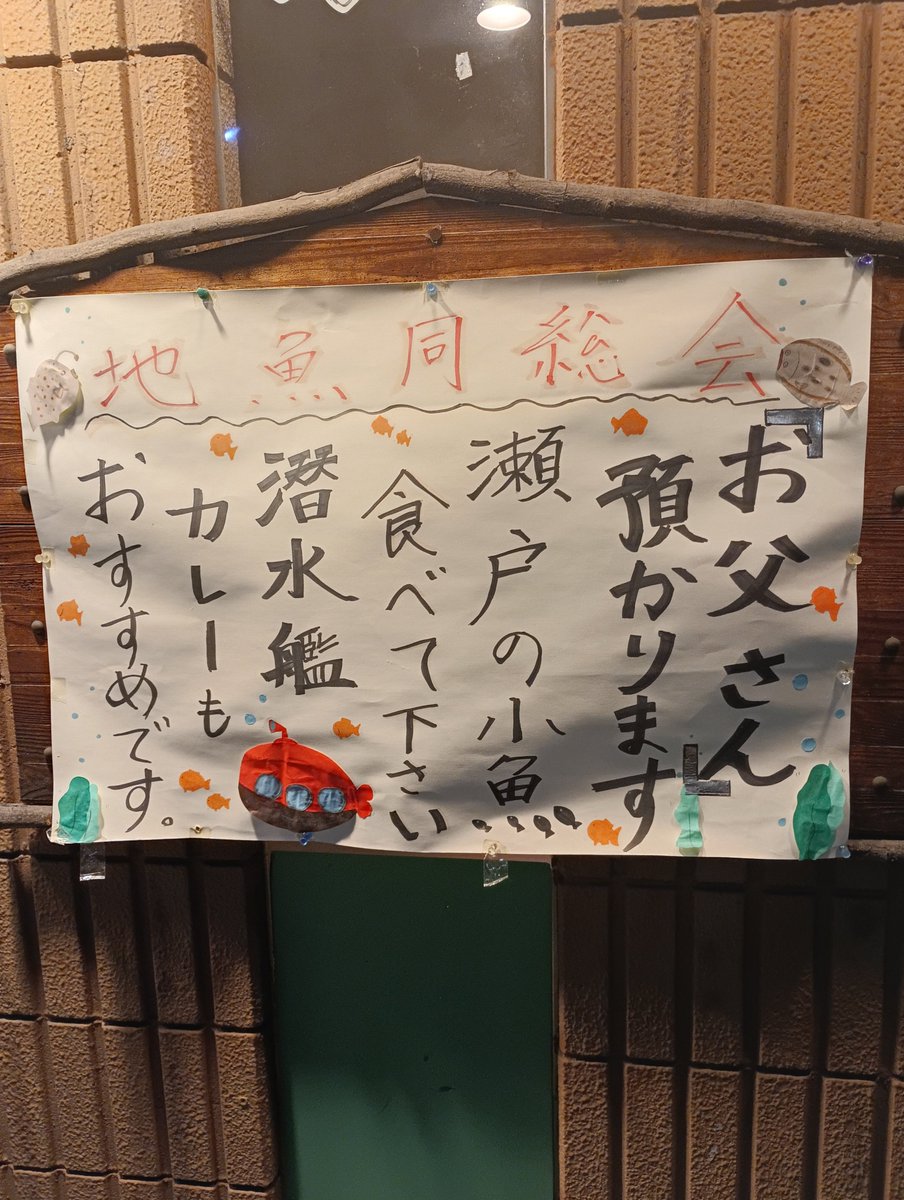 地魚同総会
『お父さん
預かります』
瀬戸の小魚
食べて下さい
潜水艦
カレーも
おすすめです。